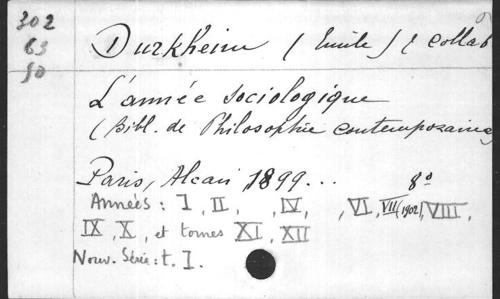 302
63
50
Durkheim (Emile) & collab
L'année sociologique
(Bibl. de Philosophie contemporaine
Paris, Alcan 1899... 8°
Années : I, II, , IV, , VI, VII (1902), VIII,
IX, X, et tomes XI, XII
Nouv. Série : t. I.